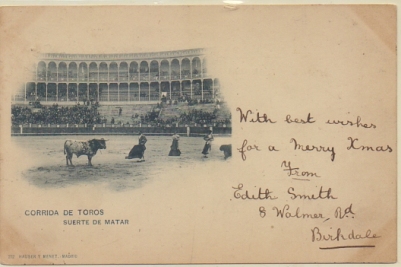 With best wishes
for a Merry Xmas
From
Edith Smith
8 Walmer Rd
Birkdale
CORRIDA DE TOROS
SUERTE DE MATAR
HAUSER Y MENET. MADRID